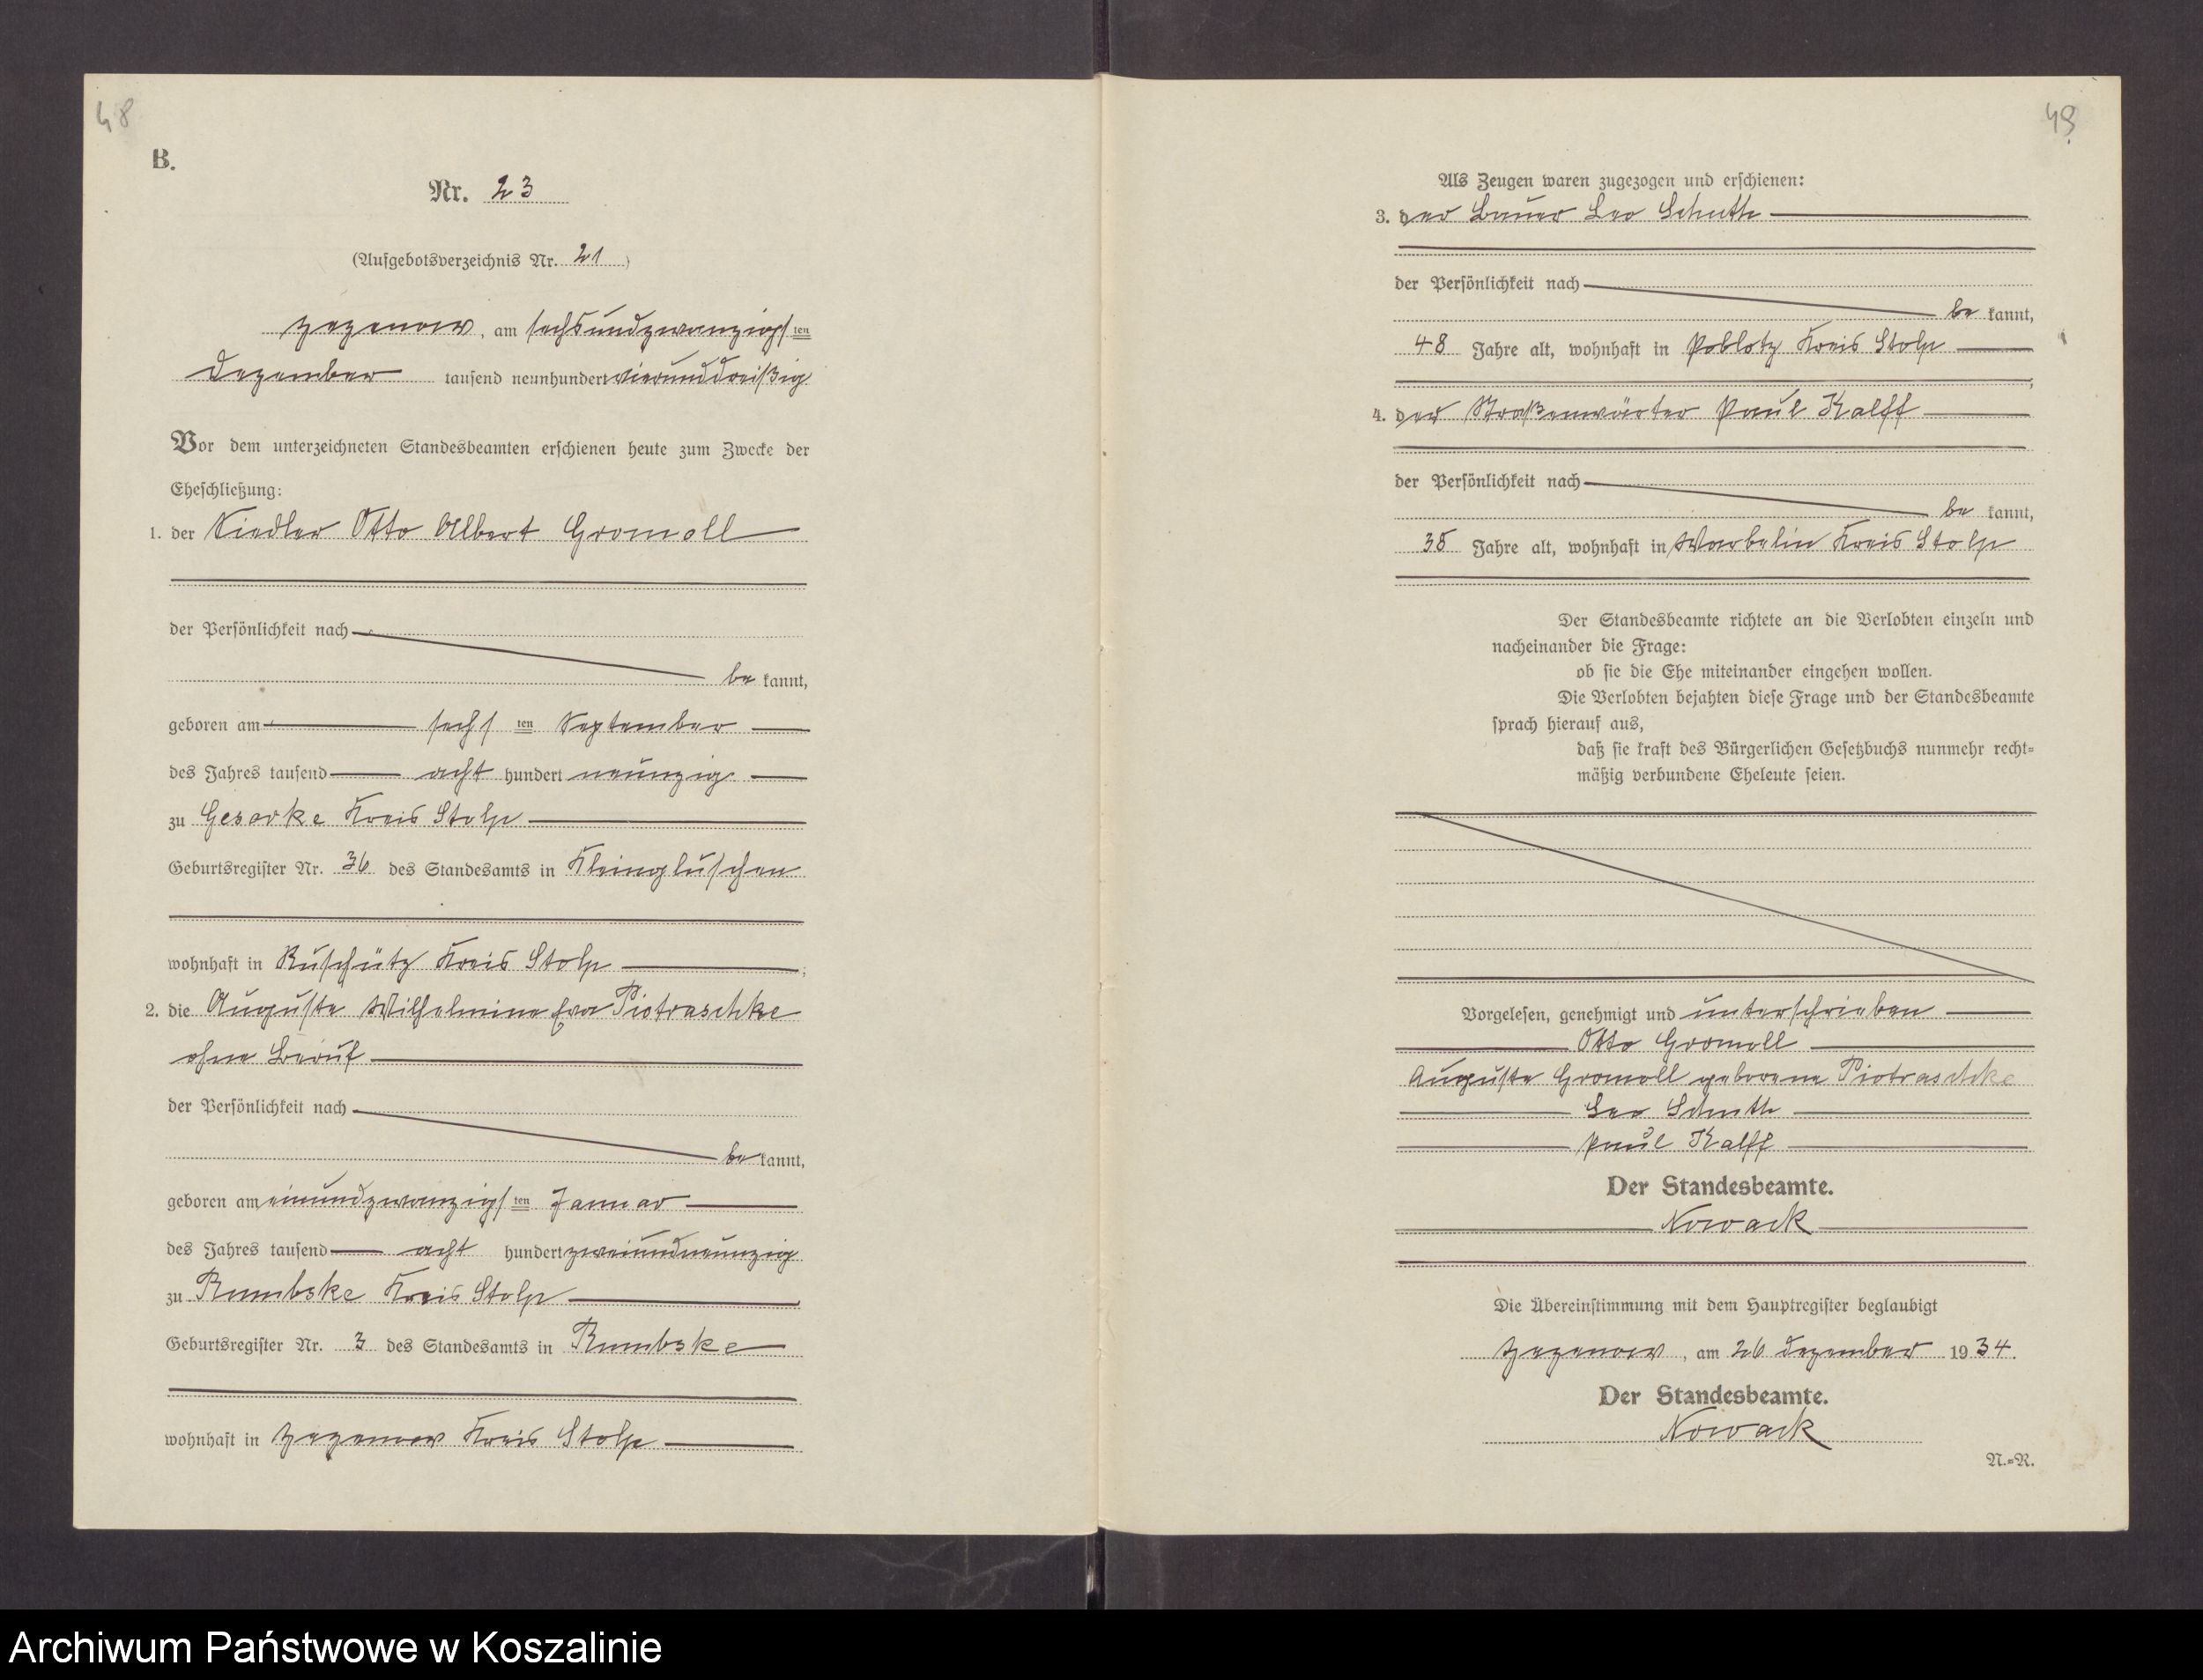 48
B.
Nr. 23
(Aufgebotsverzeichnis Nr. 21)
Zezenow, am sechsundzwanzigsten
Dezember tausend neunhundert vierunddreißig
Vor dem unterzeichneten Standesbeamten erschienen heute zum Zwecke der
Eheschließung:
1. der Siedler Otto Albert Gromoll
der Persönlichkeit nach
be kannt,
geboren am sechs ten September
des Jahres tausend acht hundert neunzig
zu Gesorke Kreis Stolp
Geburtsregister Nr. 36 des Standesamts in Kleingluschen
wohnhaft in Ruschütz Kreis Stolp,
2. die Auguste Wilhelmine Eva Piotraschke
ohne Beruf
der Persönlichkeit nach
be kannt,
geboren am einundzwanzigs ten Januar
des Jahres tausend acht hundert zweiundneunzig
zu Rumbske Kreis Stolp,
Geburtsregister Nr. 3 des Standesamts in Rumbske
wohnhaft in Zezenow Kreis Stolp
49
Als Zeugen waren zugezogen und erschienen:
3. der Bauer Leo Schuth
der Persönlichkeit nach
be kannt,
48 Jahre alt, wohnhaft in Poblotz Kreis Stolp
;
4. der Straßenwärter Paul Kalff
der Persönlichkeit nach
be kannt,
38 Jahre alt, wohnhaft in Warbelin Kreis Stolp
Der Standesbeamte richtete an die Verlobten einzeln und
nacheinander die Frage:
ob sie die Ehe miteinander eingehen wollen.
Die Verlobten bejahten diese Frage und der Standesbeamte
sprach hierauf aus,
daß sie kraft des Bürgerlichen Gesetzbuchs nunmehr recht=
mäßig verbundene Eheleute seien.
Vorgelesen, genehmigt und unterschrieben
Otto Gromoll
Auguste Gromoll geborene Piotraschke
Leo Schuth
Paul Kalff
Der Standesbeamte.
Nowack
Die Übereinstimmung mit dem Hauptregister beglaubigt
Zezenow, am 26 Dezember 1934.
Der Standesbeamte.
Nowack
N.=R.
Archiwum Państwowe w Koszalinie